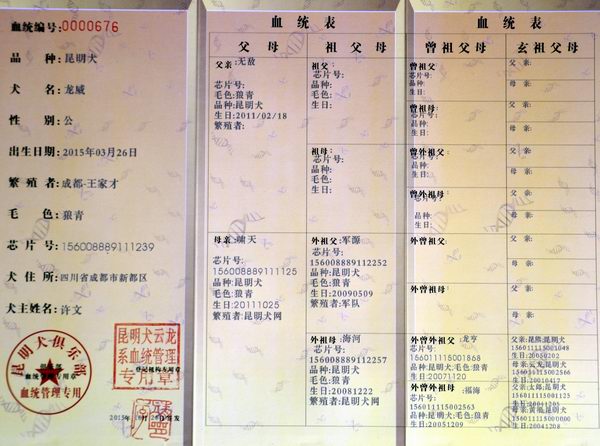 血统编号:0000676
品 种:昆明犬
犬 名:龙威
性 别:公
出生日期:2015年03月26日
繁殖者:成都-王家才
毛 色:狼青
芯片号:156008889111239
犬住所:四川省成都市新都区
犬主姓名:许文
昆明犬俱乐部
血统管理专用章
血统管理专用
昆明犬云龙
系血统管理
专用章
登记机构专用章
血统表
父母
祖父母
父亲:无敌
芯片号:
毛色:狼青
品种:昆明犬
生日:2011/02/18
繁殖者:
祖父:
芯片号:
品种:
毛色:
生日:
祖母:
芯片号:
品种:
毛色:
生日:
母亲:啸天
芯片号:
156008889111125
品种:昆明犬
毛色:狼青
生日:20111025
繁殖者:昆明犬网
外祖父:军源
156008889112252
品种:昆明犬
毛色:狼青
生日:20090509
繁殖者:军队
外祖母:海河
芯片号:
156008889112257
品种:昆明犬
毛色:狼青
生日:20081222
繁殖者:昆明犬网
血统表
曾祖父母
玄祖父母
曾祖父:
芯片号:
品种:
生日:
曾祖母:
芯片号:
品种:
生日:
曾外祖父:
芯片号:
品种:
生日:
曾外祖母:
品种:
生日:
外曾祖父:
外曾祖母:
曾外曾祖父:龙亨
芯片号:
156011115001868
品种:昆明犬;毛色:狼青
生日:20071120
曾外曾外祖母:福海
芯片号:
156011115002563
品种:昆明犬;毛色:狼青
生日:20051209
父亲:
母亲:
父亲:
母亲:
父亲:
母亲:
父亲:
母亲:
父亲:
母亲:
父亲:
母亲:
父亲:昆熊;昆明犬
156011115001048
生日:20050202
母亲:云龙;昆明犬
156011115002566
生日:20010417
父亲:太郎;昆明犬
156011115001125
母亲:黄福;昆明犬
生日:20041208